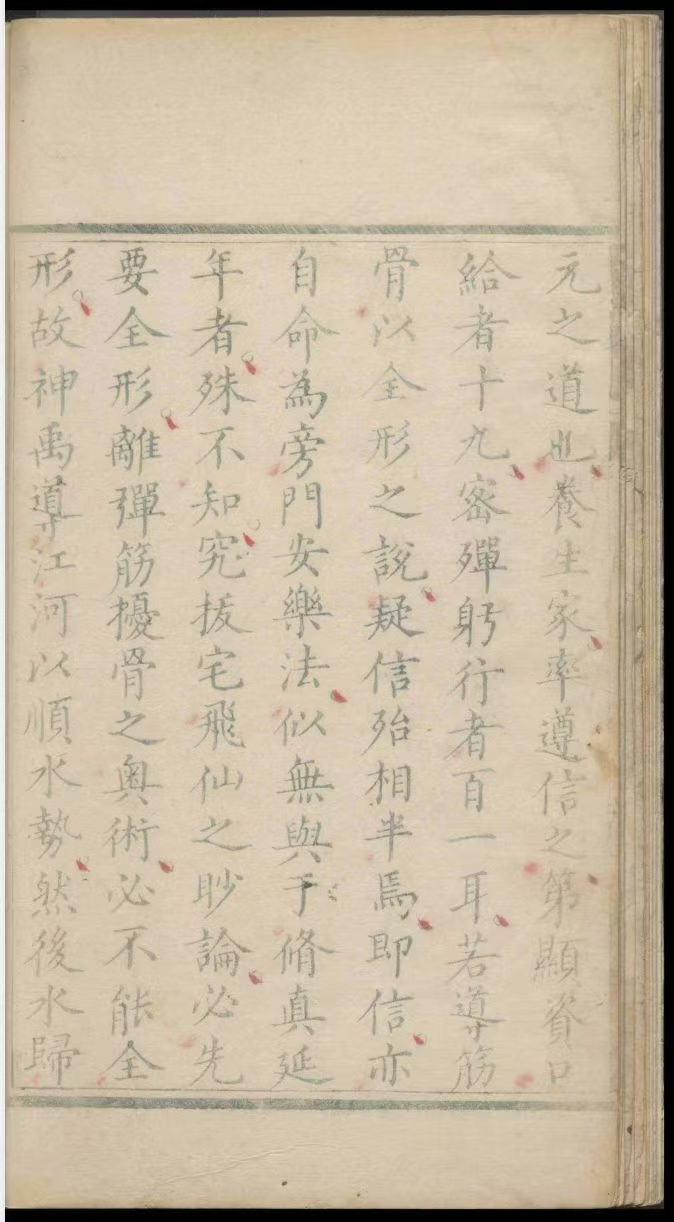 元之道也養生家率遵信之第顯資口
給者十九密殫躬行者百一耳若導筋
骨以全形之說疑信殆相半焉即信亦
自命為旁門安樂法似無與于脩真延
年者殊不知究拔宅飛仙之眇論必先
要全形離彈筋擾骨之奧術必不能全
形故神禹導江河以順水勢然後水歸